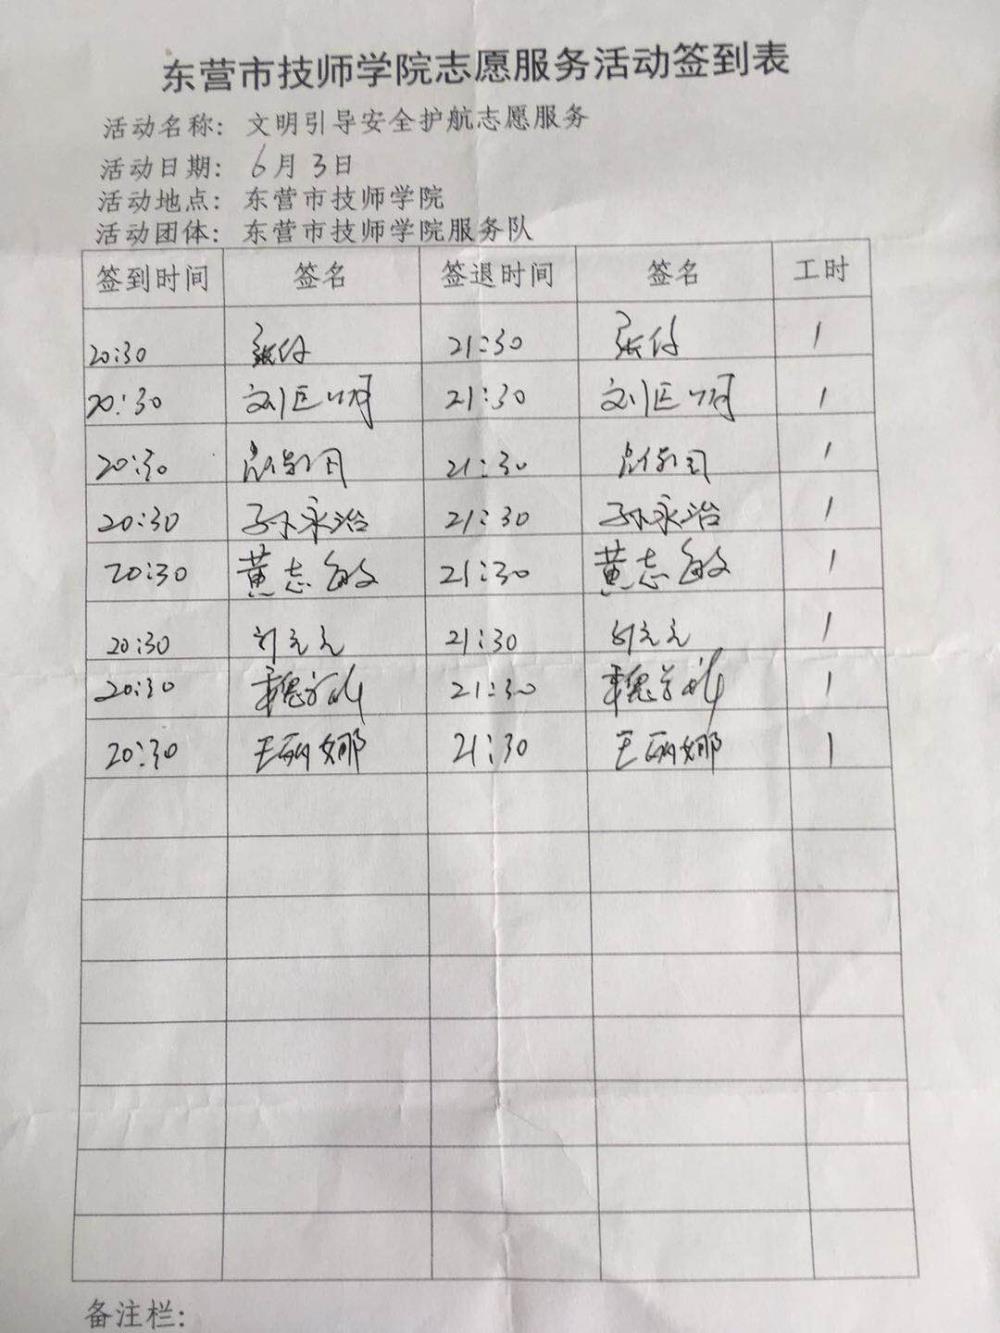 东营市技师学院志愿服务活动签到表
活动名称：文明引导安全护航志愿服务
活动日期：6月3日
活动地点：东营市技师学院
活动团体：东营市技师学院服务队
签到时间 签名 签退时间 签名 工时
20:30 张付 21:30 张付 1
20:30 刘匠明 21:30 刘匠明 1
20:30 21:30 1
20:30 孙永治 21:30 孙永治 1
20:30 黄志敏 21:30 黄志敏 1
20:30 刘元元 21:30 刘元元 1
20:30 魏 21:30 魏 1
20:30 王丽娜 21:30 王丽娜 1
备注栏：